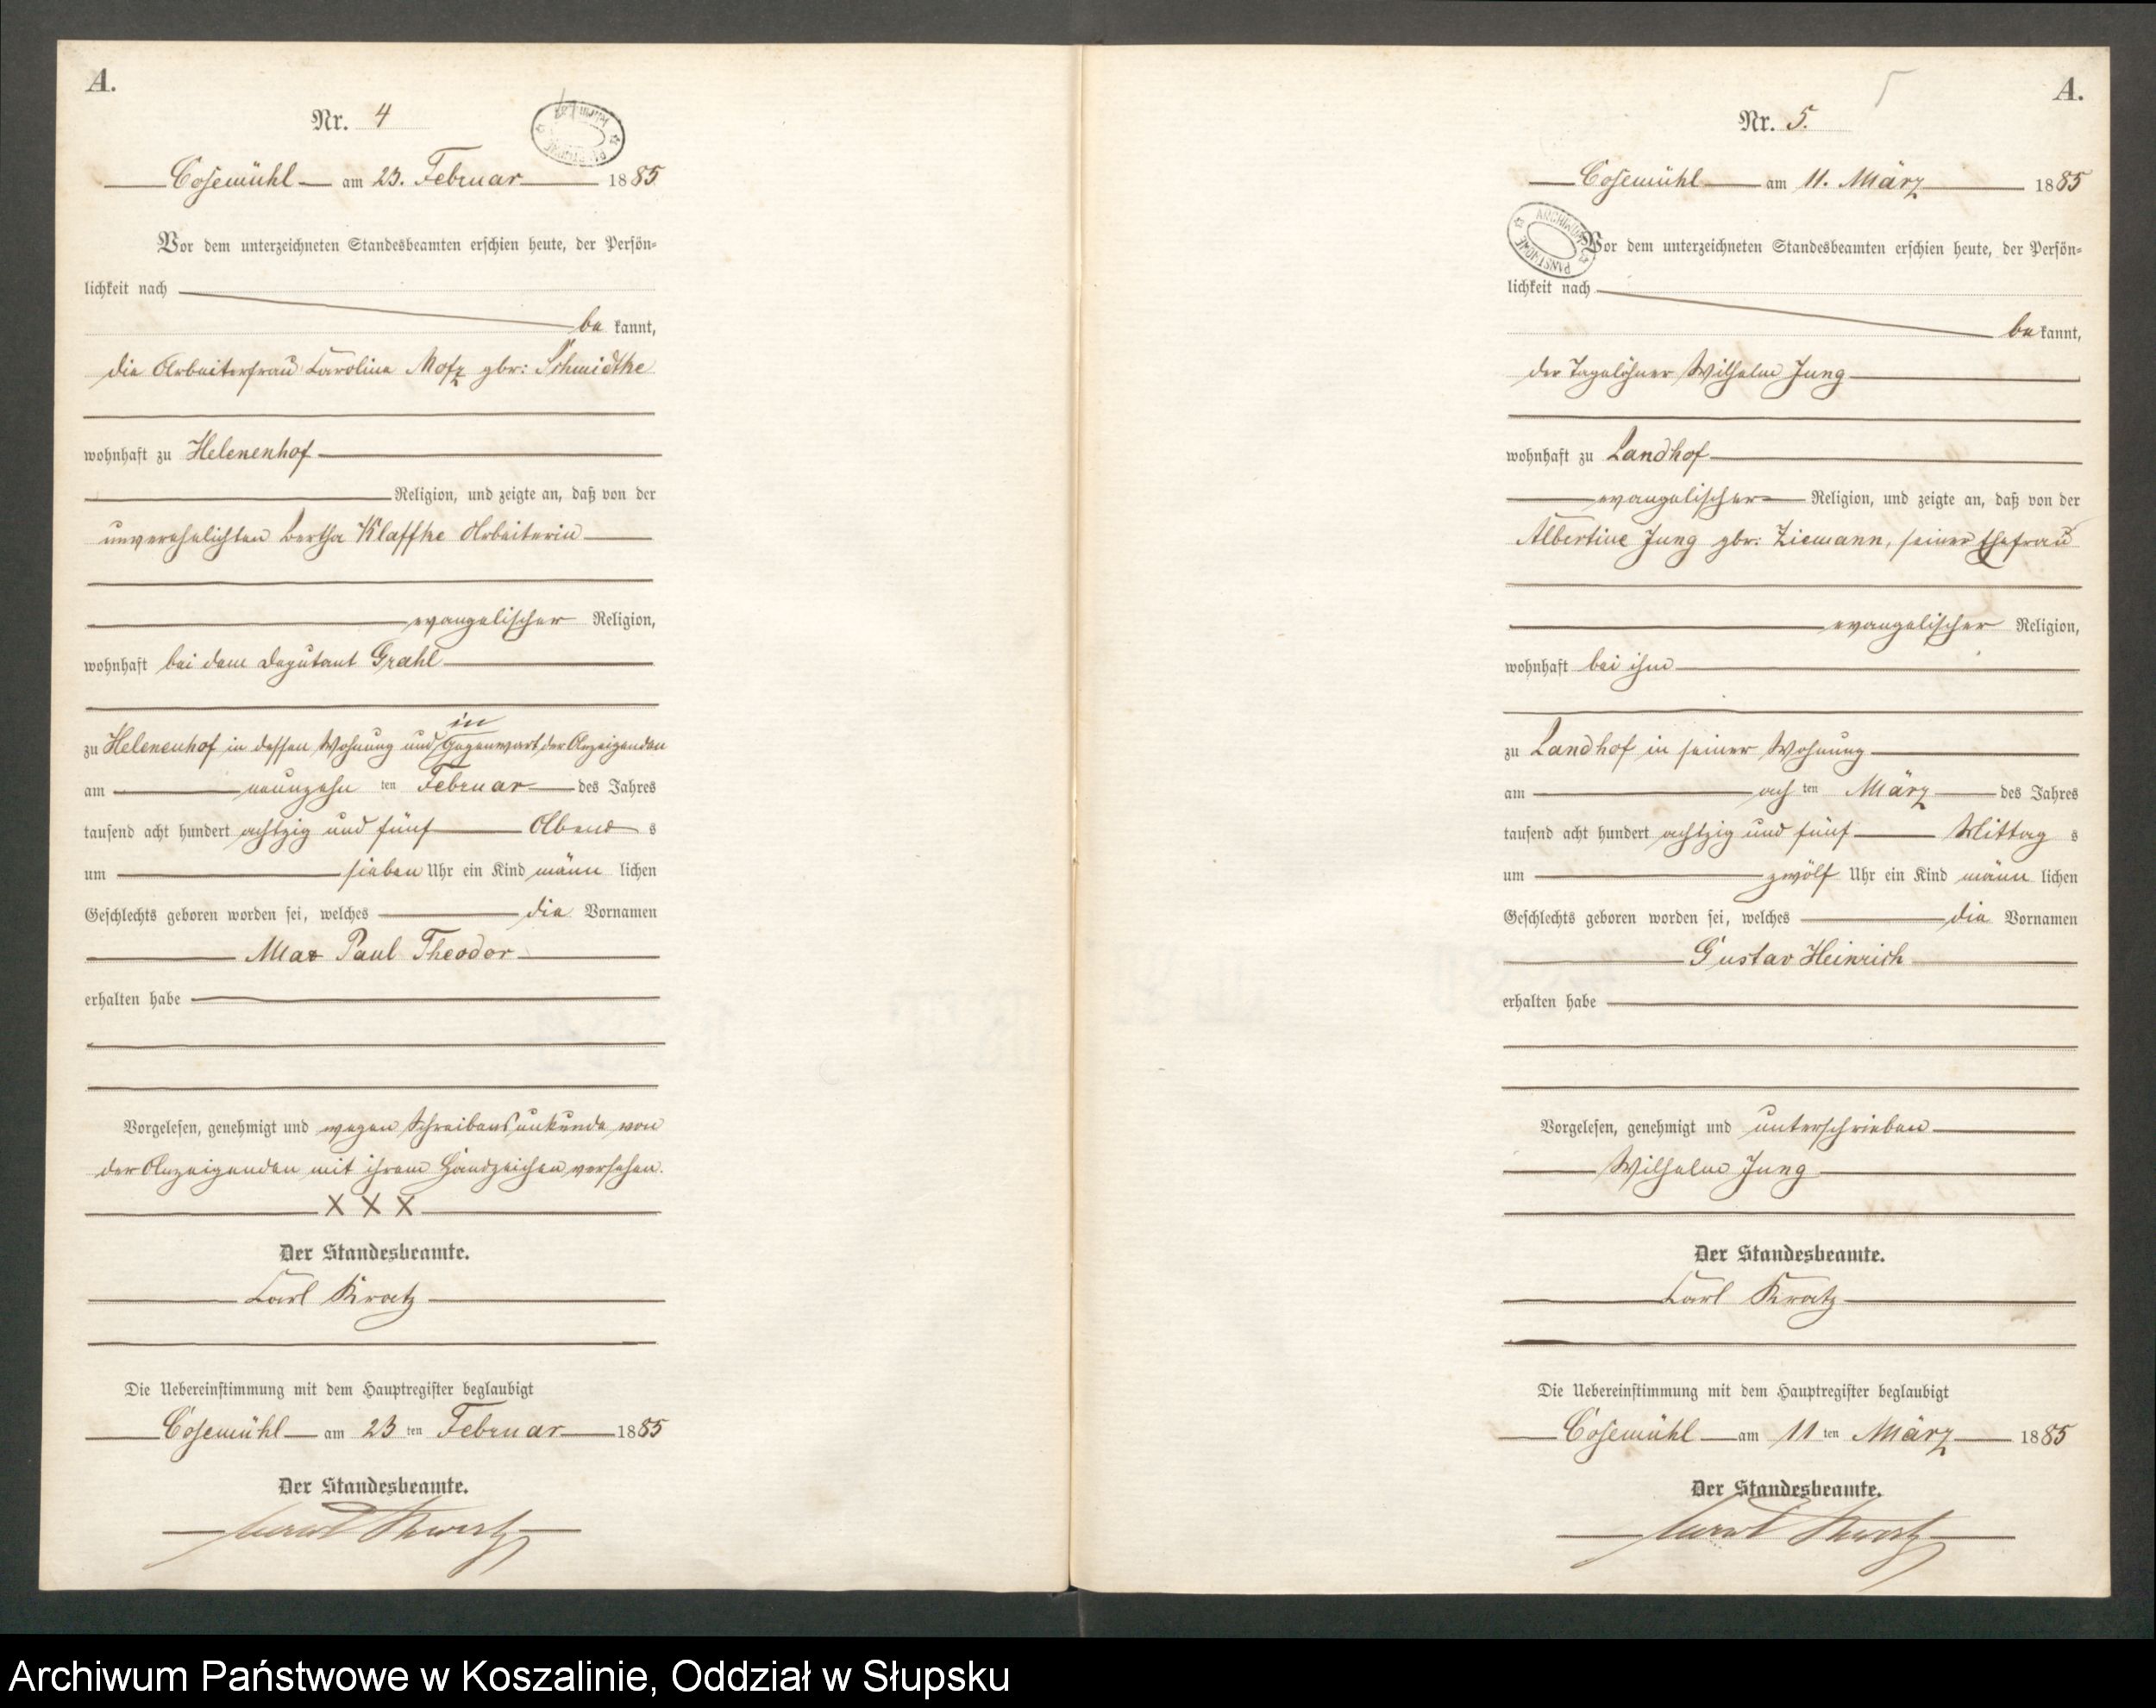 A.
Nr. 4
Cosemühl am 23. Februar 1885
Vor dem unterzeichneten Standesbeamten erschien heute, der Persön-
lichkeit nach
be kannt,
die Arbeiterfrau Caroline Motz gbr: Schmidtke
wohnhaft zu Helenenhof
Religion, und zeigte an, daß von der
unverehelichten Bertha Klaffke Arbeiterin
evangelischer Religion,
wohnhaft bei dem Deputant Grahl
in
zu Helenenhof in dessen Wohnung und Gegenwart der Anzeigenden
am neunzehn ten Februar des Jahres
tausend acht hundert achtzig und fünf Abend s
um sieben Uhr ein Kind männ lichen
Geschlechts geboren worden sei, welches die Vornamen
Max Paul Theodor
erhalten habe
Vorgelesen, genehmigt und wegen Schreibensunkunde von
der Anzeigenden mit ihrem Handzeichen versehen.
X X X
Der Standesbeamte.
Carl Kratz
Die Uebereinstimmung mit dem Hauptregister beglaubigt
Cosemühl am 23 ten Februar 1885
Der Standesbeamte.
Carl Kratz
5
A.
Nr. 5.
Cosemühl am 11. März 1885
ARCHIWUM PAŃSTWOWE
Vor dem unterzeichneten Standesbeamten erschien heute, der Persön-
lichkeit nach
be kannt,
der Tagelöhner Wilhelm Jung
wohnhaft zu Landhof
evangelischer Religion, und zeigte an, daß von der
Albertine Jung gbr: Ziemann, seiner Ehefrau
evangelischer Religion,
wohnhaft bei ihm
zu Landhof in seiner Wohnung
am ach ten März des Jahres
tausend acht hundert achtzig und fünf Mittag s
um zwölf Uhr ein Kind männ lichen
Geschlechts geboren worden sei, welches die Vornamen
Gustav Heinrich
erhalten habe
Vorgelesen, genehmigt und unterschrieben
Wilhelm Jung
Der Standesbeamte.
Carl Kratz
Die Uebereinstimmung mit dem Hauptregister beglaubigt
Cosemühl am 11 ten März 1885
Der Standesbeamte.
Carl Kratz
Archiwum Państwowe w Koszalinie, Oddział w Słupsku